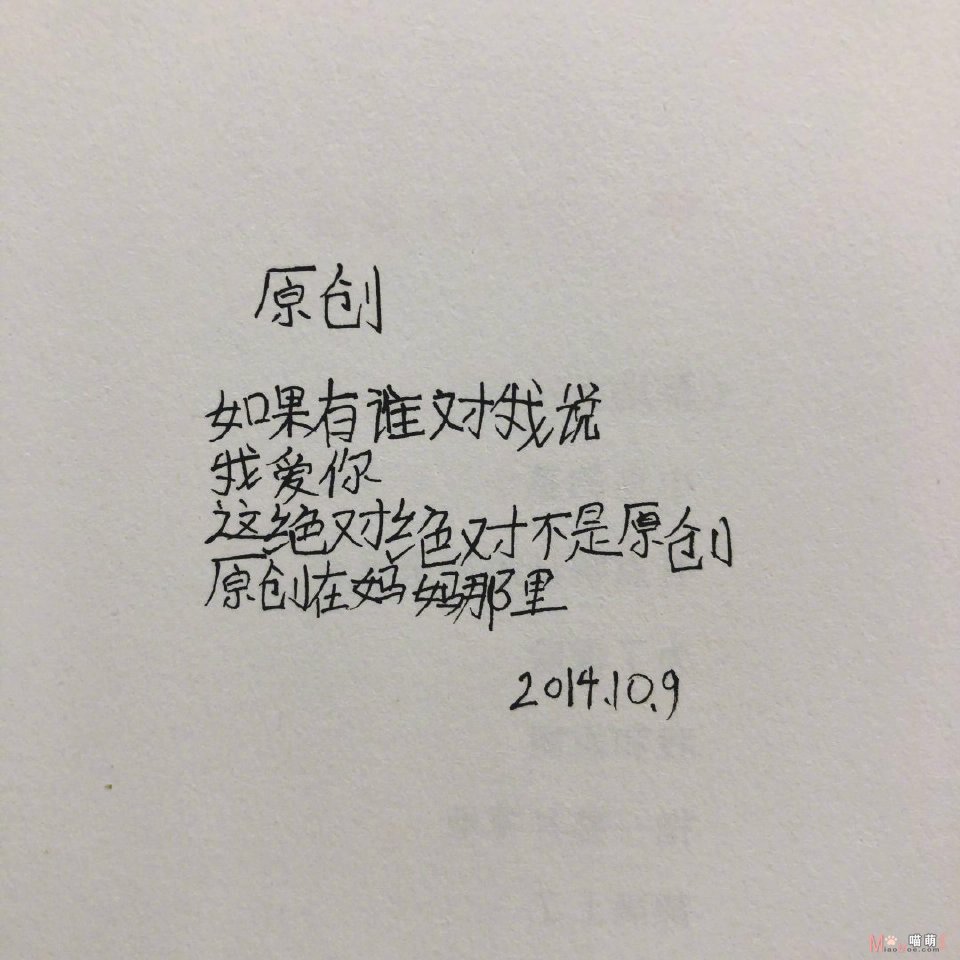 原创
如果有谁对我说
我爱你
这绝对绝对不是原创
原创在妈妈那里
2014.10.9
喵萌